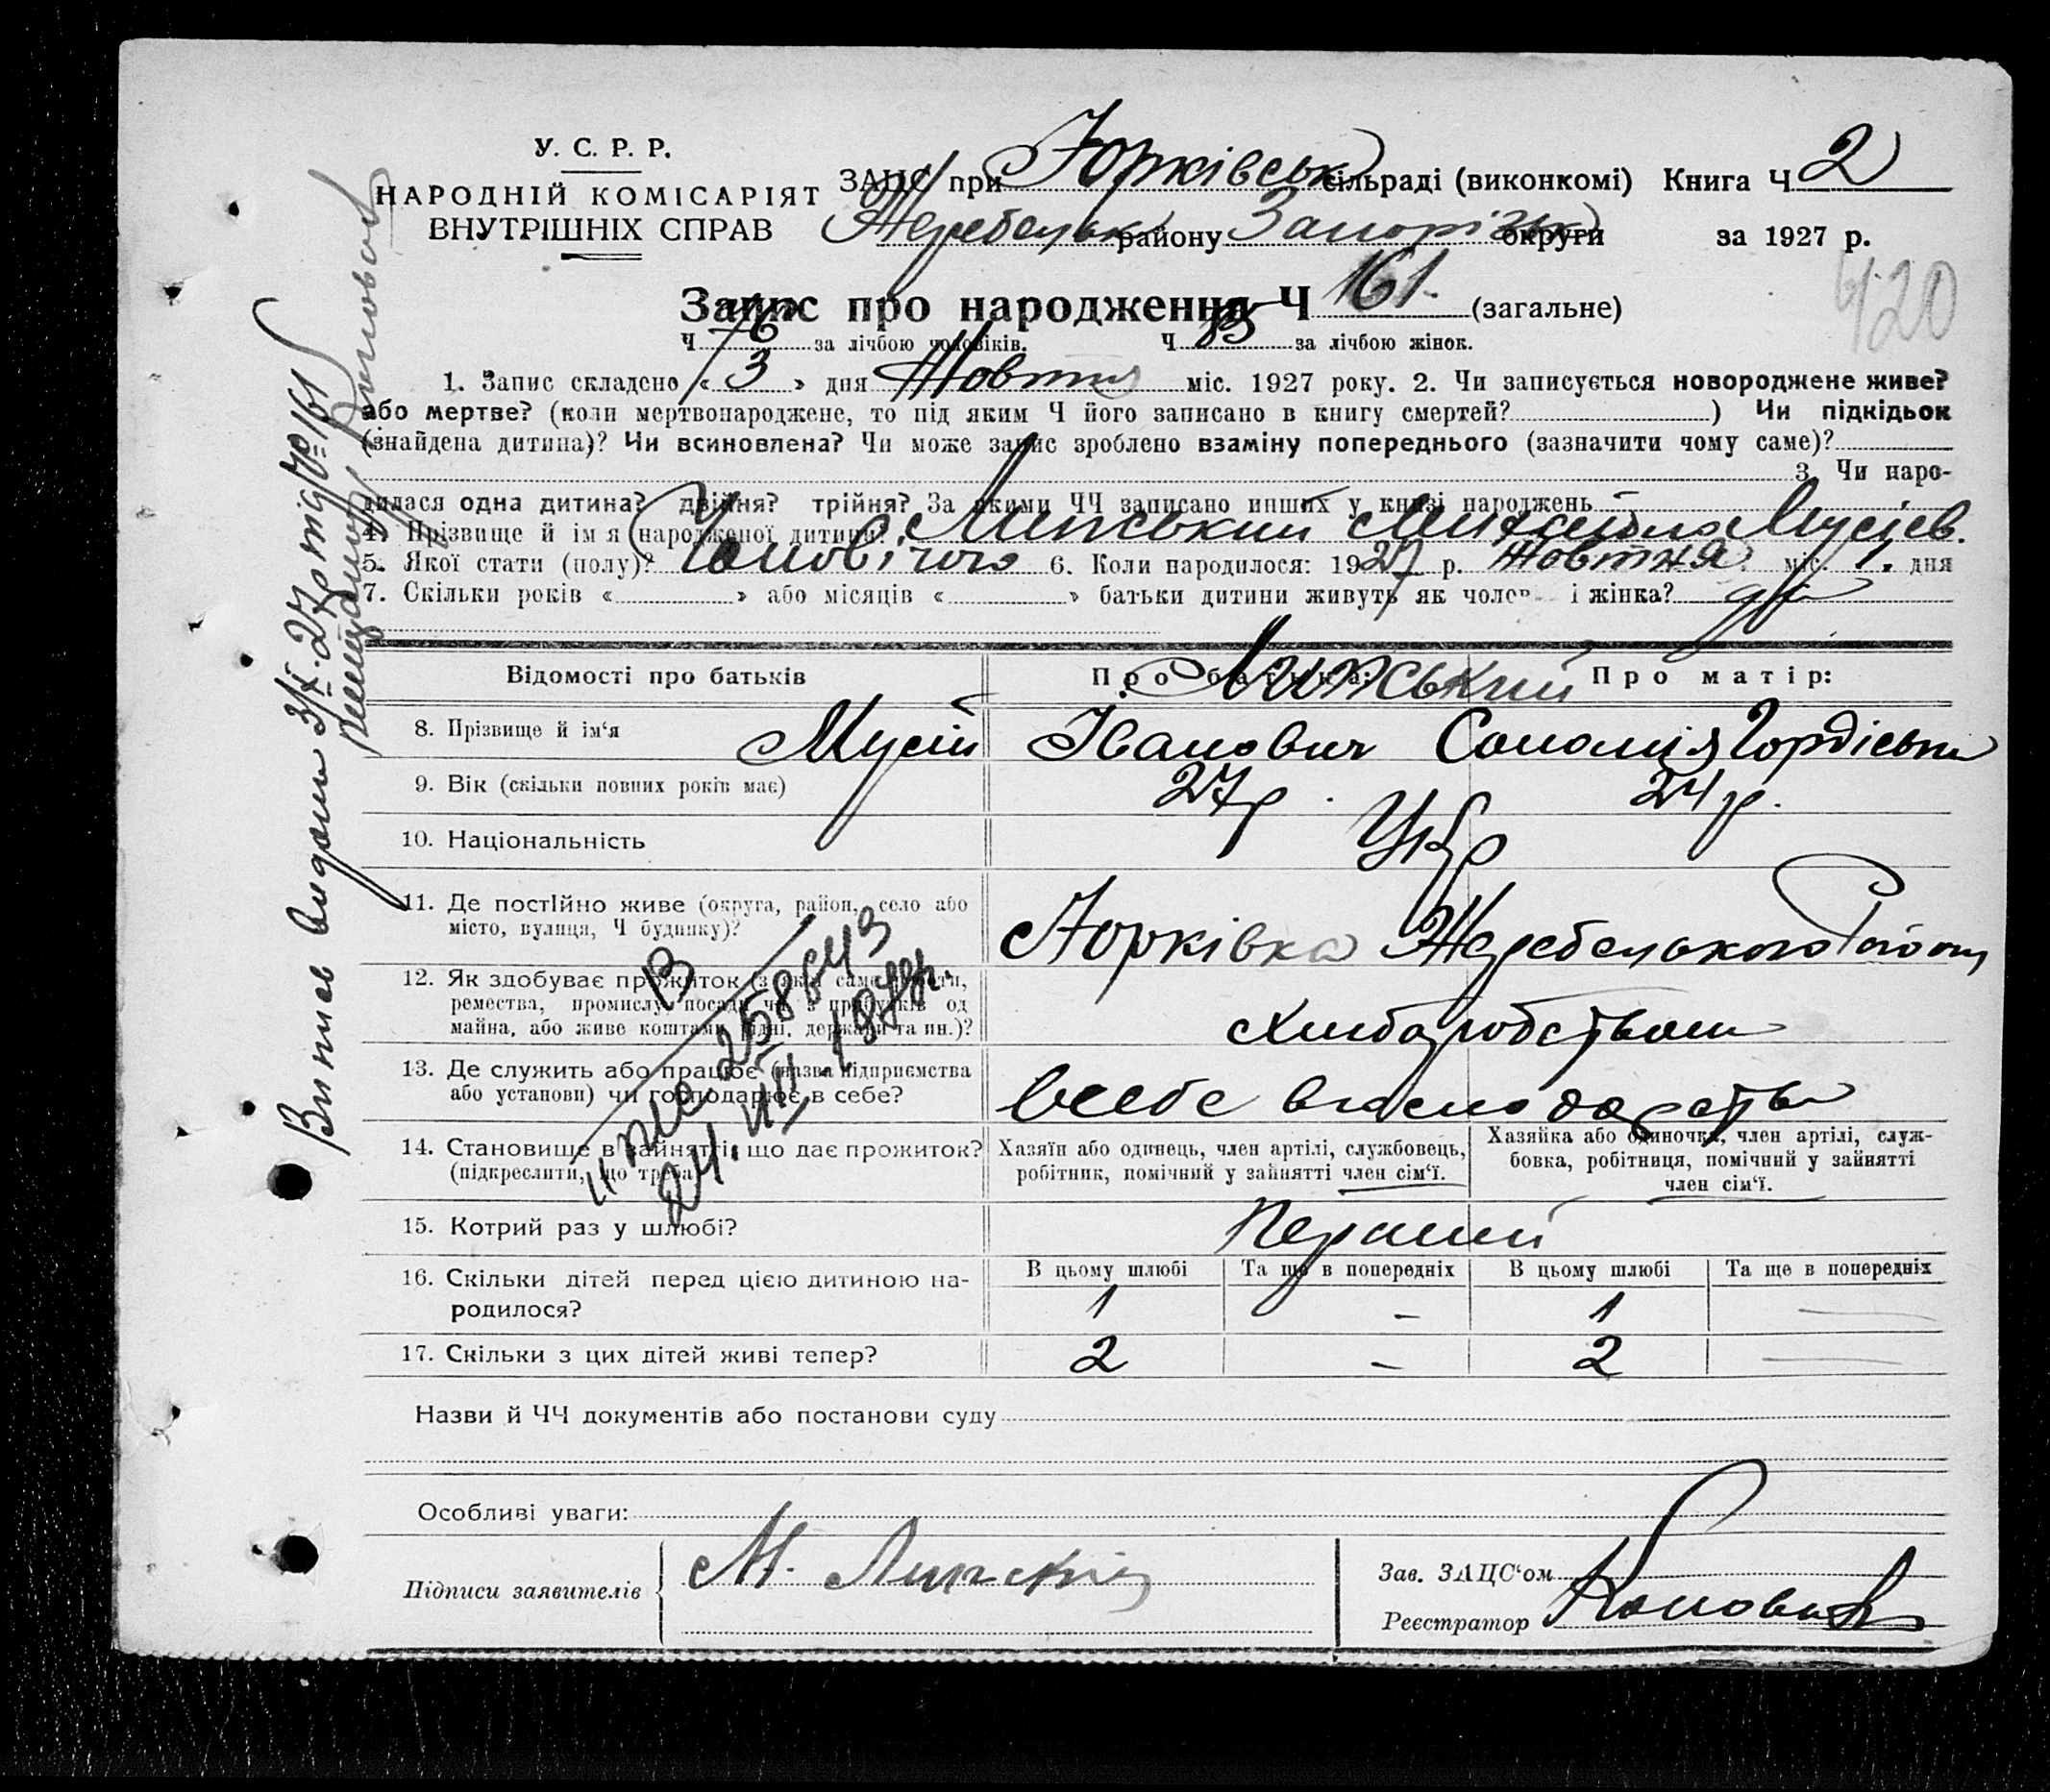 У. С. Р. Р.
НАРОДНІЙ КОМІСАРІЯТ
ВНУТРІШНІХ СПРАВ
ЗАЦС при Юрківськ сільраді (виконкомі) Книга Ч 2
Жеребецьк району Запорізьк округи за 1927 р.
420
Запис про народження Ч 161 (загальне)
Ч 76 за лічбою чоловіків. Ч 85 за лічбою жінок.
1. Запис складено « 3 » дня Жовтня міс. 1927 року. 2. Чи записується новороджене живе?
або мертве? (коли мертвонароджене, то під яким Ч його записано в книгу смертей? ) Чи підкідьок
(знайдена дитина)? Чи всиновлена? Чи може запис зроблено взаміну попереднього (зазначити чому саме)?
3. Чи наро-
дилася одна дитина? двійня? трійня? За якими ЧЧ записано инших у книзі народжень
4. Прізвище й ім'я народженої дитини: Липський Мусієв.
5. Якої стати (полу)? Чоловічого 6. Коли народилося: 1927 р. Жовтня міс. 1. дня
7. Скільки років « » або місяців « » батьки дитини живуть як чолов і жінка?
Відомості про батьків Про батька: Липський Про матір:
8. Прізвище й ім'я Мусій Іванович Соломія Гордіевна
9. Вік (скільки повних років має) 27 р. 24 р.
10. Національність Укр
11. Де постійно живе (округа, район, село або
місто, вулиця, Ч будинку)? Юрківка Жеребецького Району
12. Як здобуває прожиток (з якої саме роботи,
ремества, промислу, посади чи з прибутків од
майна, або живе коштами рідні, держави та ин.)? хліборобством
13. Де служить або працює (назва підприємства
або установи) чи господарює в себе? всебе
14. Становище в зайнятті, що дає прожиток?
(підкреслити, що треба)
Хазяїн або одинець, член артілі, службовець,
робітник, помічний у зайнятті член сім'ї.
Хазяйка або одиночка, член артілі, служ-
бовка, робітниця, помічний у зайнятті
член сім'ї.
15. Котрий раз у шлюбі? Перший
16. Скільки дітей перед цією дитиною на-
родилося?
В цьому шлюбі Та ще в попередніх В цьому шлюбі Та ще в попередніх
1 - 1 —
17. Скільки з цих дітей живі тепер? 2 - 2 —
Назви й ЧЧ документів або постанови суду
Особливі уваги:
Підписи заявителів М. Липский
Зав. ЗАЦС'ом
Реєстратор
Витяг видали 3/X-27 р 161
258643
24.VII.